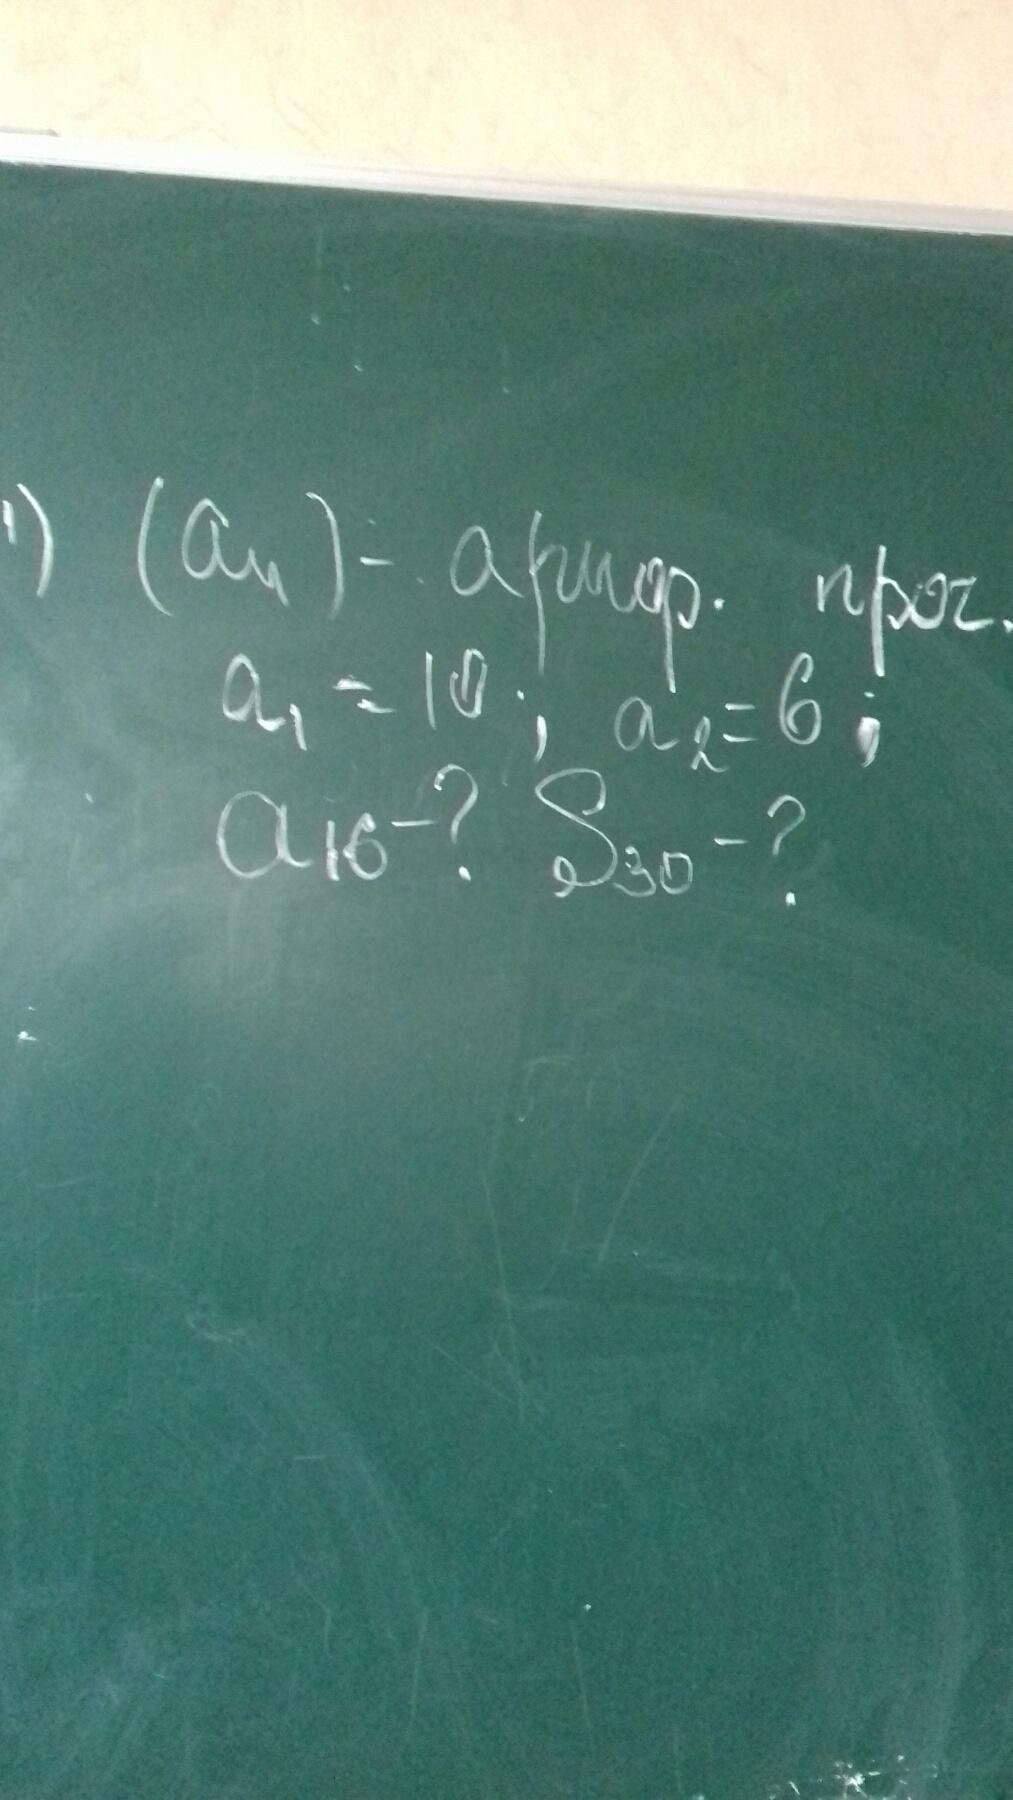 1) (an) - арифр. прог.
a1 = 10; a2 = 6;
a16 - ? S30 - ?